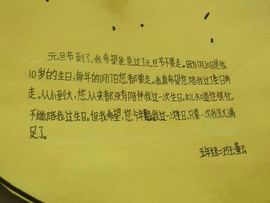 元旦节到了,我希望爸爸过了元旦不要走。因为1月20日是我
10岁的生日,每年的1月17日您都要走。我真希望您陪我过了生日再
走。从小到大,您从来都没有陪伴我过一次生日。我知道您很忙,
不能陪我过生日。但我希望,您今年陪我过一次生日,只要一次我就
足了。
五年级二班 董云